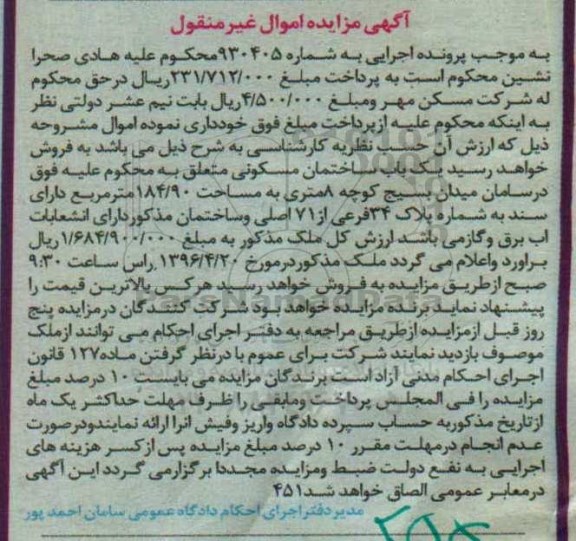 آگهی مزایده اموال غیرمنقول
به موجب پرونده اجرایی به شماره ۹۳۰۴۰۵محکوم علیه هادی صحرا
نشین محکوم است به پرداخت مبلغ ۲۳۱/۷۱۲/۰۰۰ریال درحق محکوم
له شرکت مسکن مهر ومبلغ ۴/۵۰۰/۰۰۰ریال بابت نیم عشر دولتی نظر
به اینکه محکوم علیه ازپرداخت مبلغ فوق خودداری نموده اموال مشروحه
ذیل که ارزش آن حسب نظریه کارشناسی به شرح ذیل می باشد به فروش
خواهد رسید یک باب ساختمان مسکونی متعلق به محکوم علیه فوق
درسامان میدان بسیج کوچه ۸متری به مساحت ۱۸۴/۹۰مترمربع دارای
سند به شماره پلاک ۳۴فرعی از۷۱ اصلی وساختمان مذکوردارای انشعابات
اب برق وگازمی باشد ارزش کل ملک مذکور به مبلغ ۱/۶۸۴/۹۰۰/۰۰۰ریال
براورد واعلام می گردد ملک مذکوردرمورخ ۱۳۹۶/۴/۲۰ راس ساعت ۹:۳۰
صبح ازطریق مزایده به فروش خواهد رسید هرکس بالاترین قیمت را
پیشنهاد نماید برنده مزایده خواهد بود شرکت کنندگان درمزایده پنج
روز قبل ازمزایده ازطریق مراجعه به دفتر اجرای احکام می توانند ازملک
موصوف بازدید نمایند شرکت برای عموم با درنظر گرفتن ماده۱۲۷ قانون
اجرای احکام مدنی آزاد است برندگان مزایده می بایست ۱۰ درصد مبلغ
مزایده را فی المجلس پرداخت ومابقی را ظرف مهلت حداکثر یک ماه
ازتاریخ مذکوربه حساب سپرده دادگاه واریز وفیش انرا ارائه نمایندودرصورت
عدم انجام درمهلت مقرر ۱۰ درصد مبلغ مزایده پس ازکسر هزینه های
اجرایی به نفع دولت ضبط ومزایده مجددا برگزارمی گردد این آگهی
درمعابر عمومی الصاق خواهد شد۴۵۱
مدیردفتراجرای احکام دادگاه عمومی سامان احمد پور